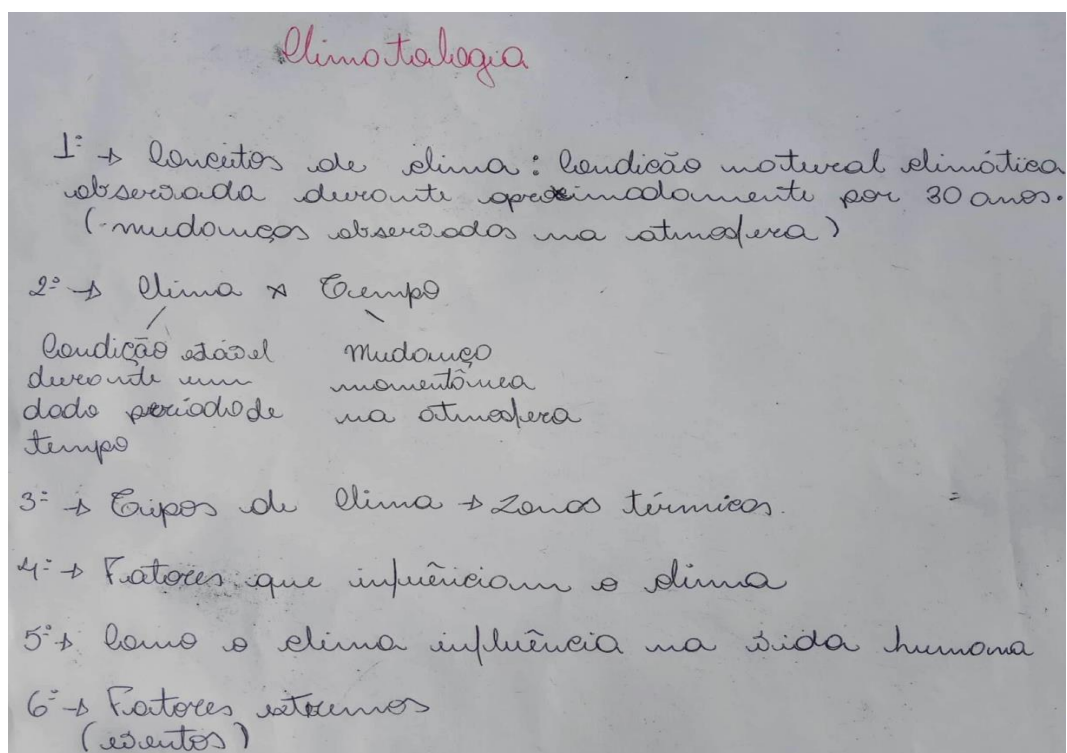 Climatologia
1º → Conceitos de clima: Condição natural climática
observada durante aproximadamente por 30 anos.
(mudanças observadas na atmosfera)
2º → Clima x Tempo
Condição estável
durante um
dado período de
tempo
Mudança
momentânea
na atmosfera
3º → Tipos de Clima → Zonas térmicas.
4º → Fatores que influênciam o clima
5º → Como o clima influência na vida humana
6º → Fatores extremos
(eventos)